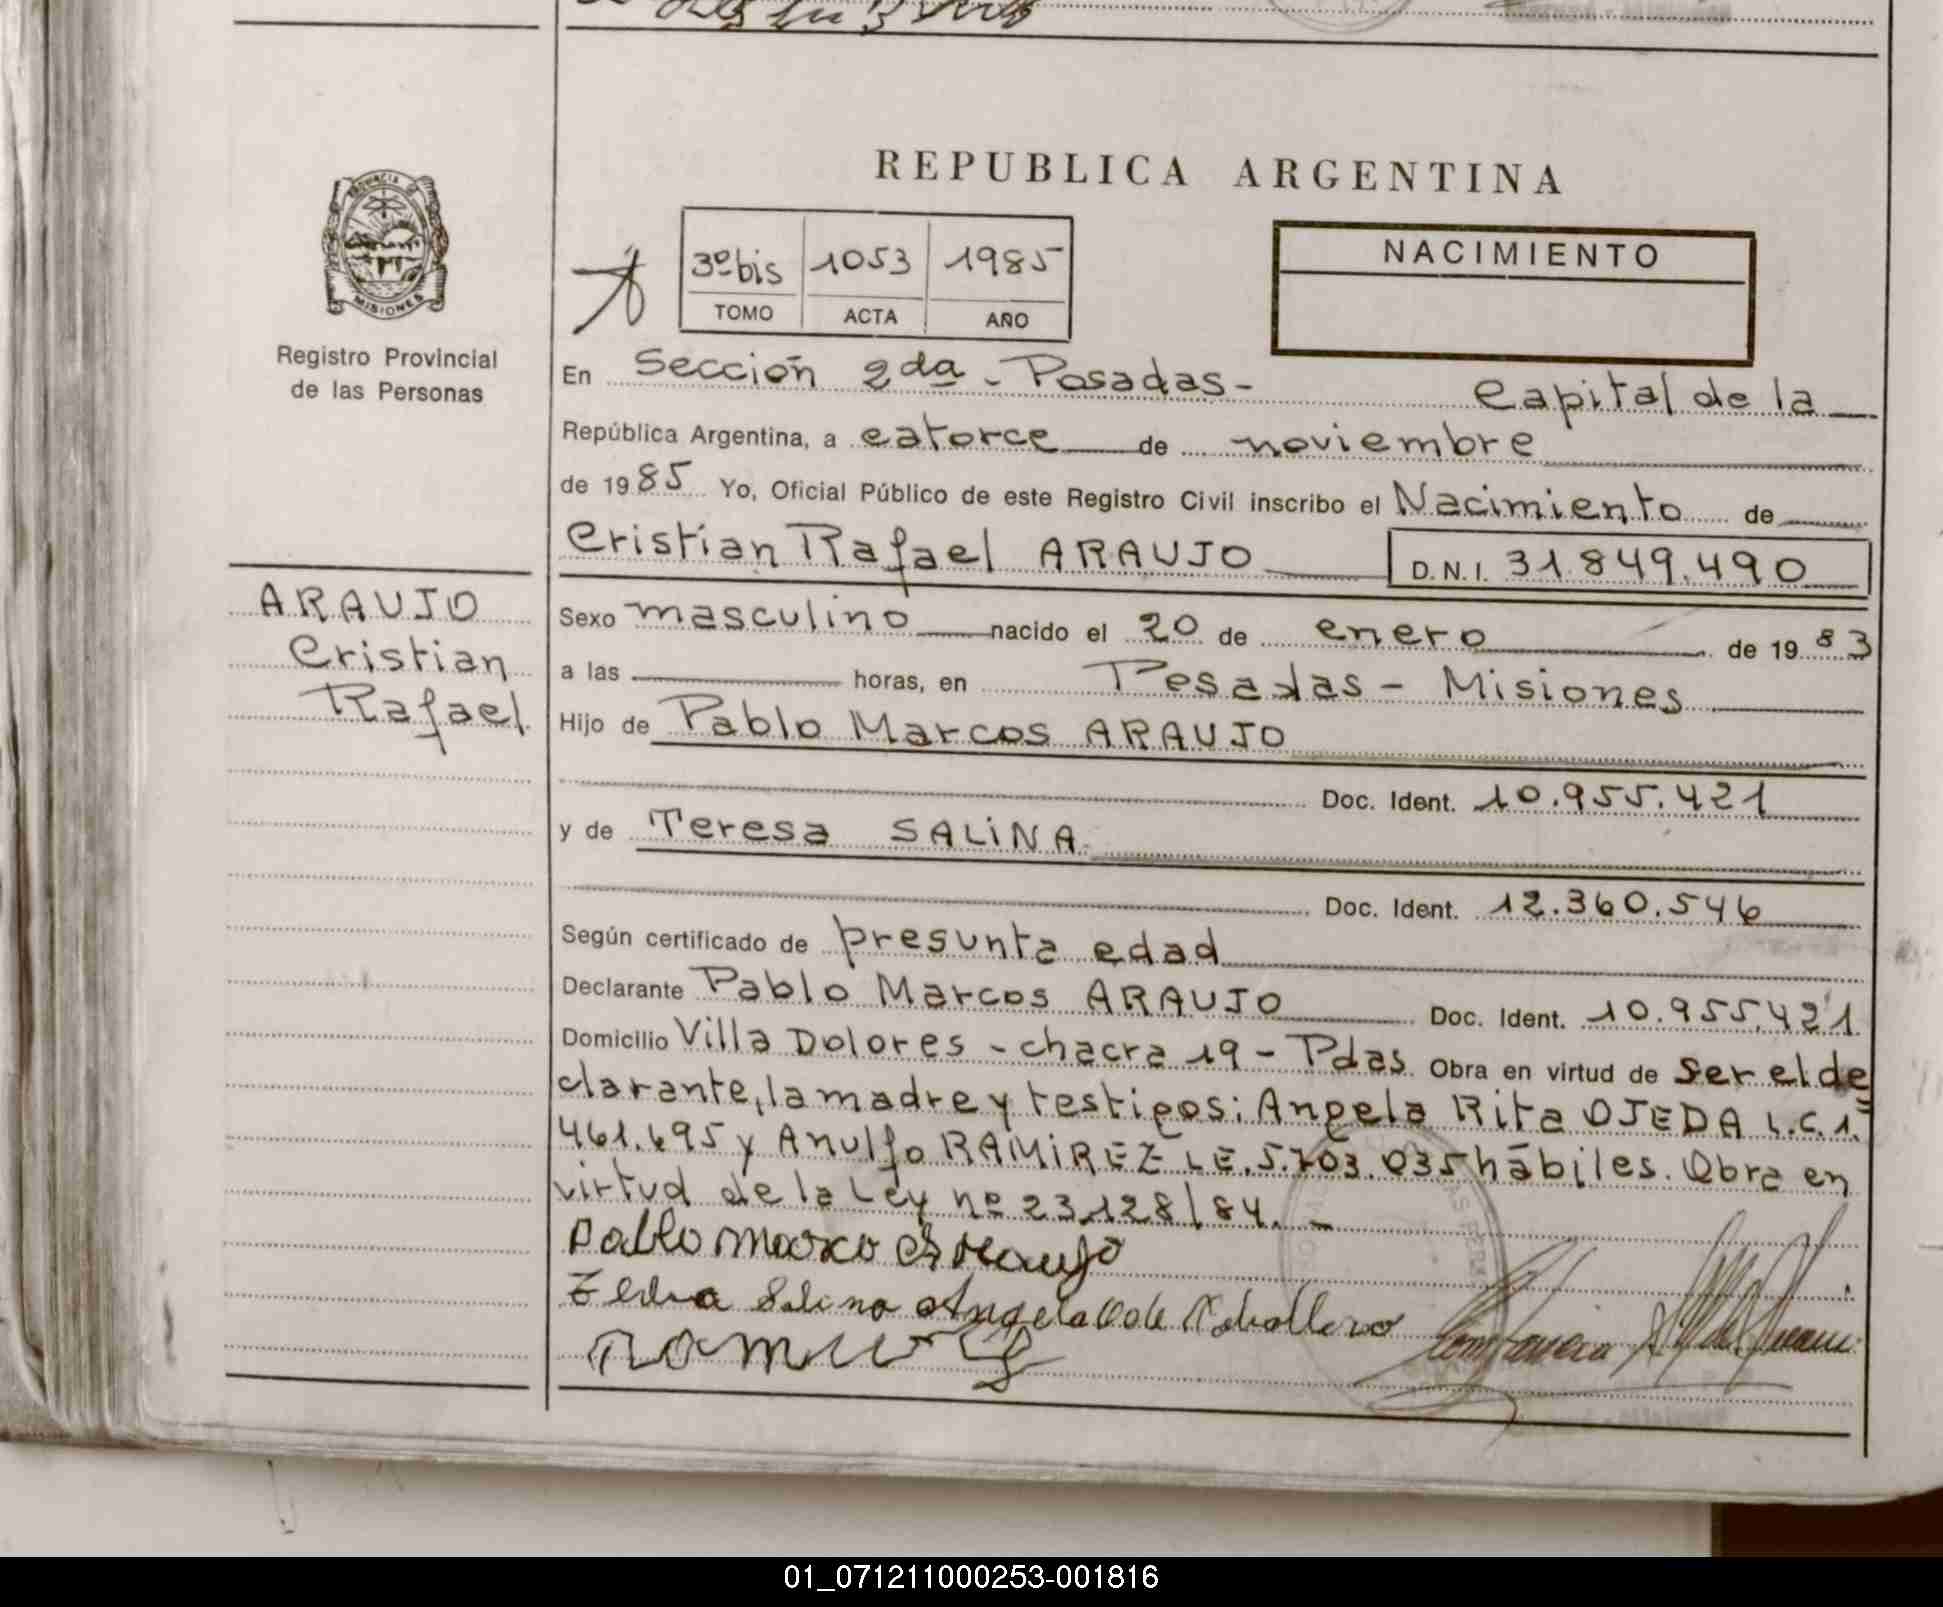 REPUBLICA ARGENTINA
PROVINCIA DE
MISIONES
Registro Provincial
de las Personas
3º bis 1053 1985
TOMO ACTA AÑO
NACIMIENTO
En Sección 2da - Posadas - Capital de la
República Argentina, a catorce de noviembre
de 1985 Yo, Oficial Público de este Registro Civil inscribo el Nacimiento de
Cristian Rafael ARAUJO D.N.I. 31.849.490
ARAUJO
Cristian
Rafael
Sexo masculino nacido el 20 de enero de 1983
a las horas, en Posadas - Misiones
Hijo de Pablo Marcos ARAUJO
Doc. Ident. 10.955.421
y de Teresa SALINA
Doc. Ident. 12.360.546
Según certificado de presunta edad
Declarante Pablo Marcos ARAUJO Doc. Ident. 10.955.421
Domicilio Villa Dolores - chacra 19 - Pdas Obra en virtud de ser el de
clarante, la madre y testigos: Angela Rita OJEDA L.C. 1.
461.695 y Anulfo RAMIREZ L.E. 5.703.035 hábiles. Obra en
virtud de la Ley nº 23.128/84. -
Pablo Marco Araujo
Salina Angela O de Caballero
01_071211000253-001816